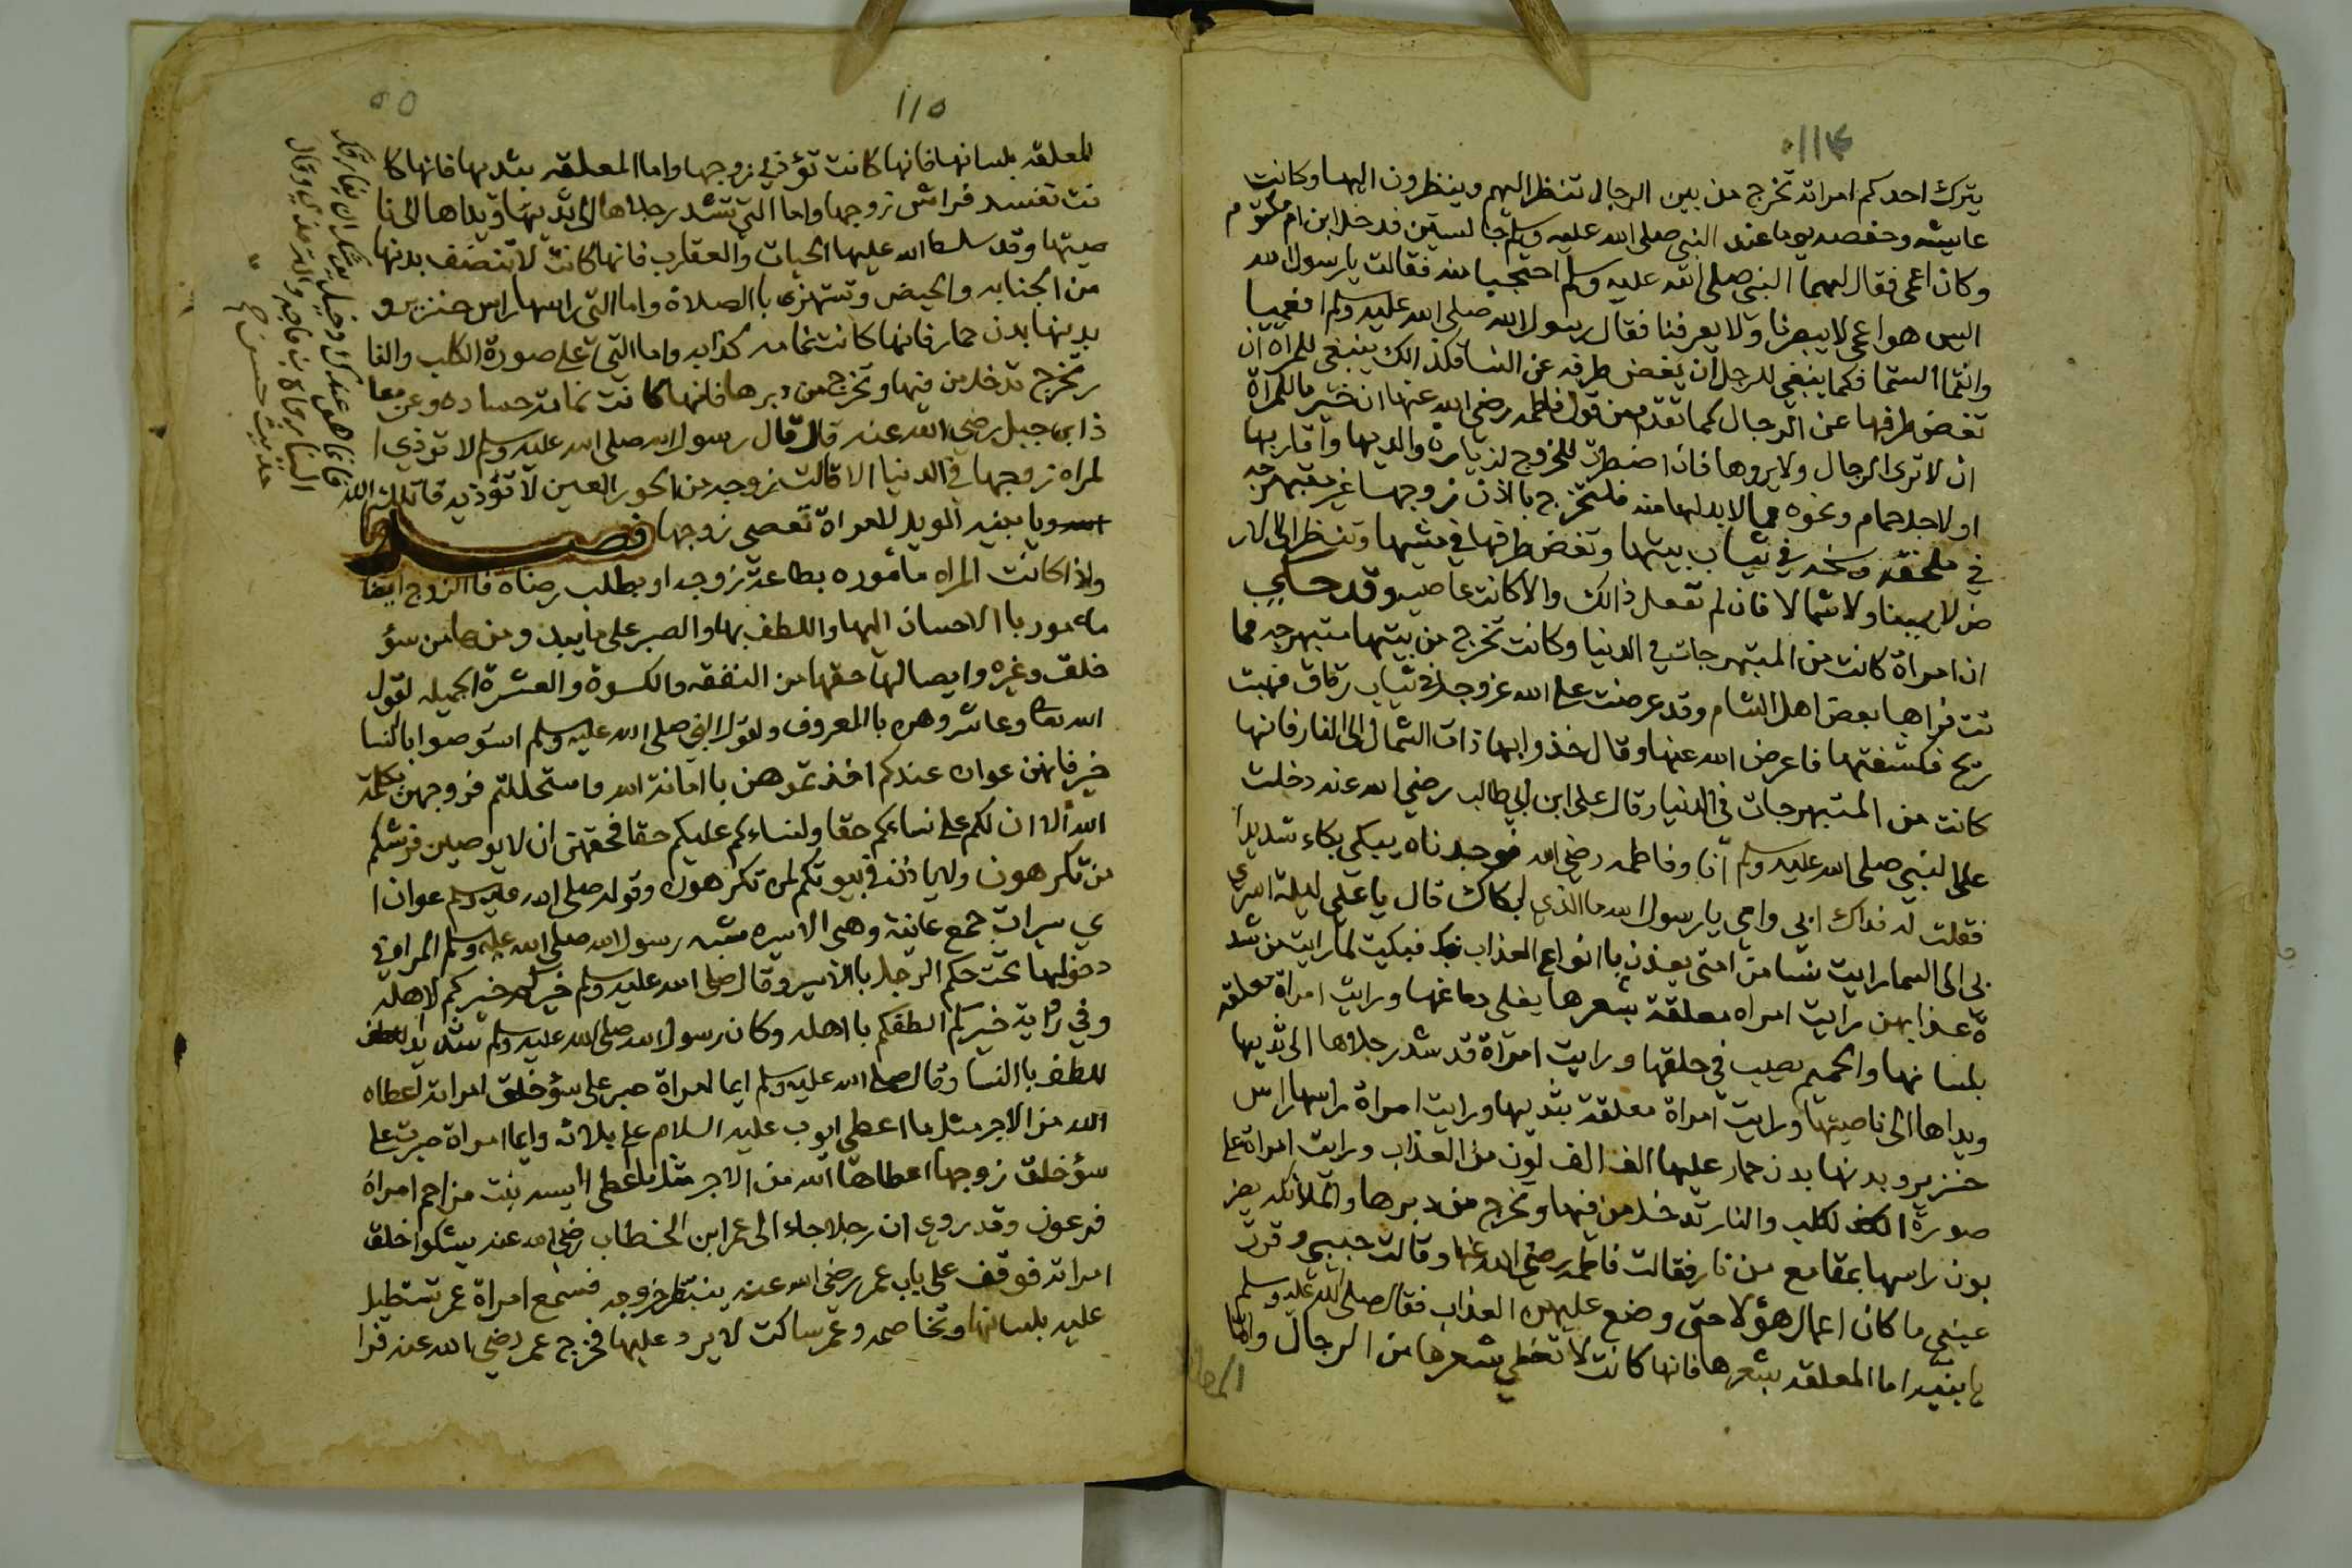 ١١٤
يترك احدكم امراته تخرج من بين الرجال تنظر اليهم وينظرون اليها وكانت
عايشه وحفصه يوما عند النبي صلى الله عليه وسلم جالستين فدخل ابن ام مكتوم
وكان اعمى فقال لهما النبي صلى الله عليه وسلم احتجبا منه فقالت يا رسول الله
اليس هو اعمى لا يبصرنا ولا يعرفنا فقال رسول الله صلى الله عليه وسلم افعميا
وانتما الستما فكما ينبغي للرجل ان يغض طرفه عن النسا فكذالك ينبغي للمراه ان
تغض طرفها عن الرجال كما تقدم من قول فاطمه رضي الله عنها ان خير ما للمراة
ان لا ترى الرجال ولا يروها فان اضطرت للخروج لزيارة والديها واقاربها
او لاجل حمام ونحوه مما لا بد لها منه فلتخرج با اذن زوجها غير متبهرجه
في ملحفه وسخه في ثياب بيتها وتغض طرفها في مشيها وتنظر الى الار
ض لا يمينا ولا شمالا فان لم تفعل ذالك والا كانت عاصيه وقد حكي
ان امراة كانت من المتبهرجات في الدنيا وكانت تخرج من بيتها متبهرجه فما
تت فراها بعض اهل الشام وقد عرضت على الله عزوجل في ثياب رقاق فهبت
ريح فكشفتها فاعرض الله عنها وقال خذوا بها ذات الشمال الى النار فانها
كانت من المتبهرجات في الدنيا وقال على ابن ابي طالب رضي الله عنه دخلت
على النبي صلى الله عليه وسلم انا وفاطمه رضي الله فوجدناه يبكي بكاء شديدا
فقلت له فداك ابي وامي يا رسول الله ما الذي ابكاك قال يا علي ليلة اسري
بي الى السما رايت نسا من امتى يعذبن با انواع العذاب فبكيت لما رايت من شد
ة عذابهن رايت امراه معلقة بشعرها يغلى دماغها ورايت امراة معلقه
بلسانها والحميم يصب في حلقها ورايت امراة قد شد رجلاها الى ثديها
ويداها الى ناصيتها ورايت امراة معلقة بثديها ورايت امراة راسها راس
خنزير وبدنها بدن حمار عليها الف الف لون من العذاب ورايت امراة على
صورة الكلب والنار تدخل من فيها وتخرج من دبرها والملائكه يضر
بون راسها بمقامع من نار فقالت فاطمه رضي الله عنها وقالت حبيبي وقرت
عيني ما كان اعمال هؤلا حتى وضع عليهن العذاب فقال صلى الله عليه وسلم
يا بنيه اما المعلقه بشعرها فانها كانت لا تغطي شعرها من الرجال واما
١١٥
٥٥
المعلقه بلسانها فانها كانت تؤذي زوجها واما المعلقه بثديها فانها كا
نت تفسد فراش زوجها واما التي تشد رجلاها الى ثديها ويداها الى نا
صيتها وقد سلط الله عليها الحيات والعقارب فانها كانت لا تنضف بدنها
من الجنابه والحيض وتستهزى با الصلاة واما التي راسها راس خنزير و
بدنها بدن حمار فانها كانت نمامه كذابه واما التي على صورة الكلب والنا
ر تخرج تدخل من فيها وتخرج من دبرها فانها كانت نمامة حساده وعن معا
ذ ابن جبل رضي الله عنه قال قال رسول الله صلى الله عليه وسلم لا توذي ا
لمراه زوجها في الدنيا الا قالت زوجه من الحور العين لا تؤذيه قاتلك الله
ويا بنيه الويل للمراة تعصى زوجها فصل
واذا كانت المراه مأموره بطاعة زوجه او بطلب رضاه فا الزوج ايضا
مامور با الاحسان اليها واللطف بها والصبر على ما يبدو منها من سؤ
خلق وغيره وايصالها حقها من النفقه والكسوة والعشرة الجميله لقول
الله تعالى وعاشروهن با المعروف ولقول النبي صلى الله عليه وسلم استوصوا بالنسا
خير فانهن عوان عندكم اخذتموهن با امانة الله واستحللتم فروجهن بكلمة
الله الا ان لكم على نسائكم حقا ولنساءكم عليكم حقا فحقهن ان لا يوصين فرشكم
من تكرهون ولا ياذن في بيوتكم لمن تكرهون وقوله صلى الله عليه وسلم عوان ا
ي سيرات جمع عانية وهي الاسيره شبه رسول الله صلى الله عليه وسلم المراة في
دخولها تحت حكم الرجل با الاسير وقال صلى الله عليه وسلم خيركم خيركم لاهله
وفي رواية خيركم الطفكم با اهله وكان رسول الله صلى الله عليه وسلم شديد
اللطف با النسا وقال صلى الله عليه وسلم ايما امراة صبر على سؤ خلق امراته اعطاه
الله من الاجر مثل ما اعطى ايوب عليه السلام على بلائه وايما امراة صبرت على
سؤ خلق زوجها اعطاها الله من الاجر مثل ما اعطى اسيه بنت مزاحم امراة
فرعون وقد روي ان رجلا جاء الى عمر ابن الخطاب رضي الله عنه يشكوا خلق
امراته فوقف على باب عمر رضي الله عنه ينتظر خروجه فسمع امراة عمر تستطيل
عليه بلسانها وتخاصمه وعمر ساكت لا يرد عليها فخرج عمر رضي الله عنه فرا
فانما هو عندك دخيل يوشك ان يفارقك
الينا رواه ابن ماجه والترمذي وقال
حديث حسن